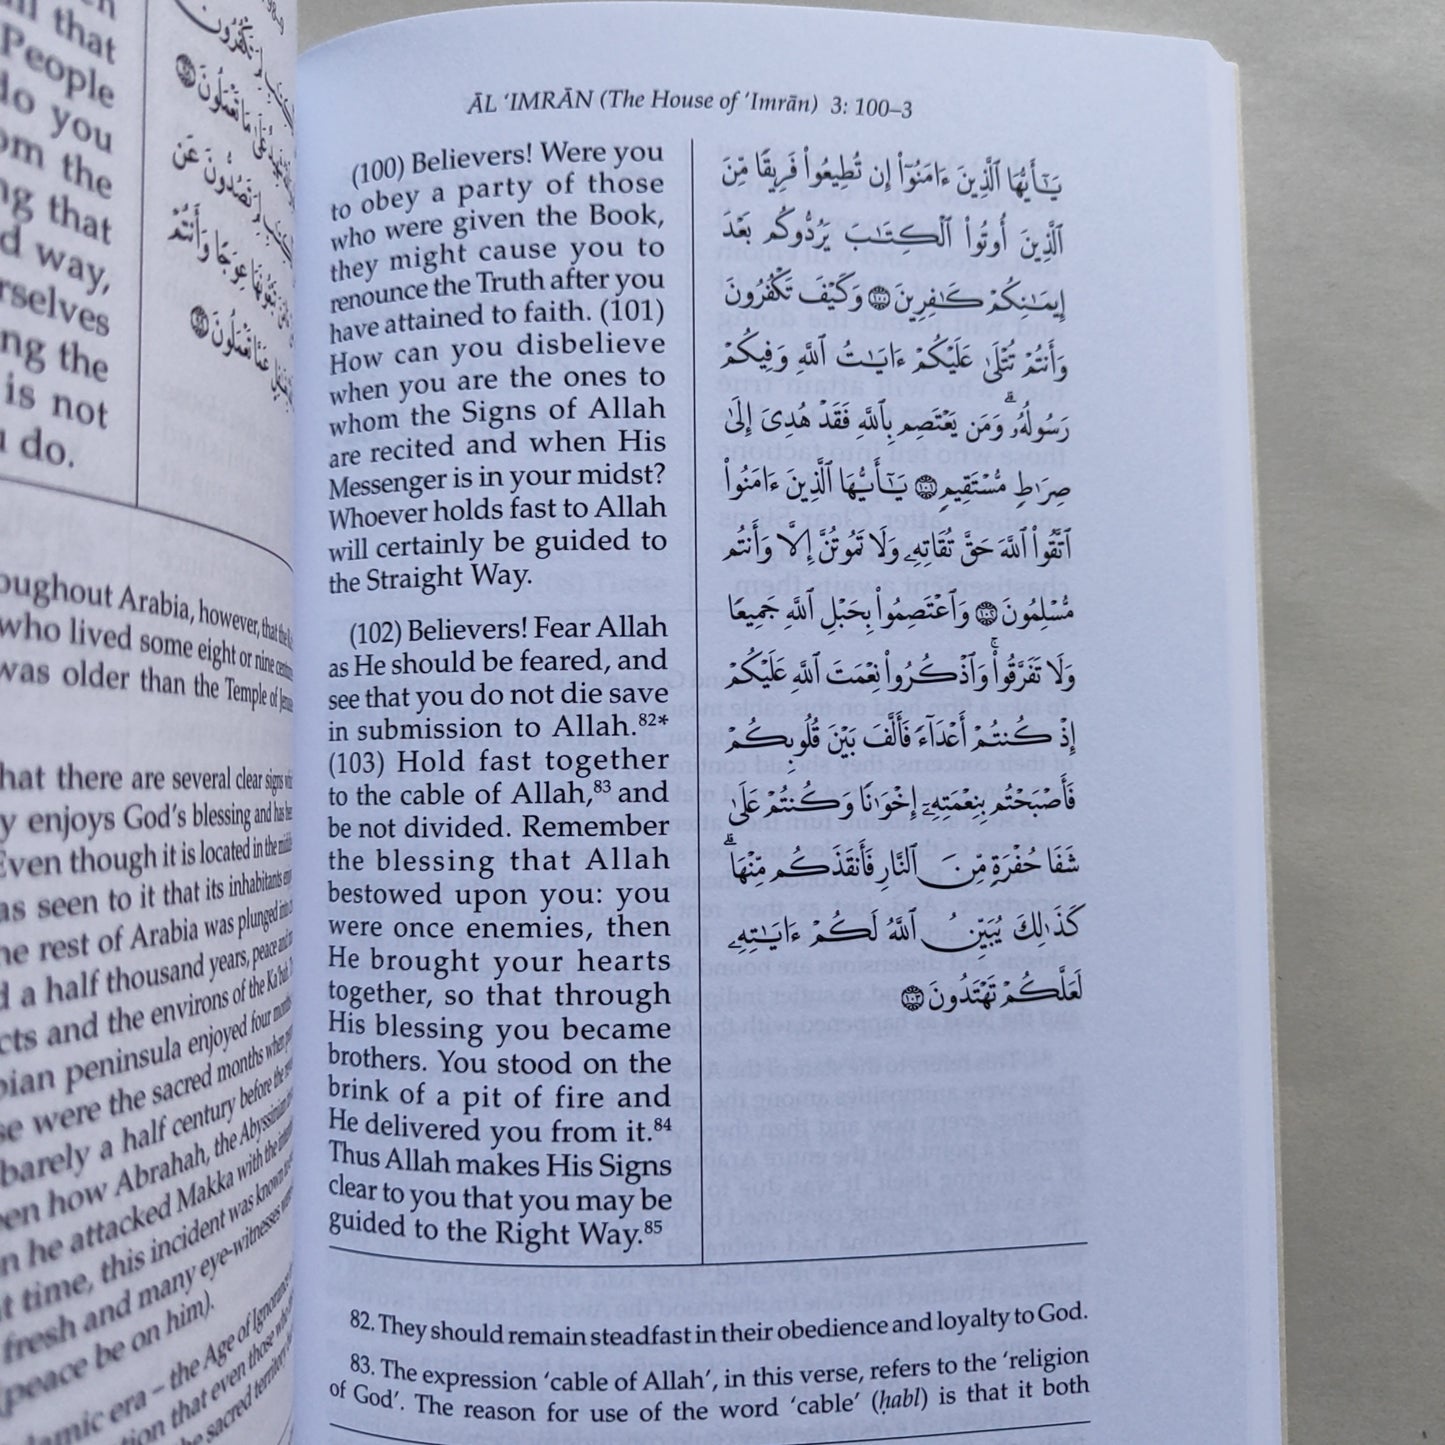 ĀL ‘IMRĀN (The House of ’Imrān) 3: 100–3
(100) Believers! Were you
to obey a party of those
who were given the Book,
they might cause you to
renounce the Truth after you
have attained to faith. (101)
How can you disbelieve
when you are the ones to
whom the Signs of Allah
are recited and when His
Messenger is in your midst?
Whoever holds fast to Allah
will certainly be guided to
the Straight Way.
(102) Believers! Fear Allah
as He should be feared, and
see that you do not die save
in submission to Allah.82*
(103) Hold fast together
to the cable of Allah,83 and
be not divided. Remember
the blessing that Allah
bestowed upon you: you
were once enemies, then
He brought your hearts
together, so that through
His blessing you became
brothers. You stood on the
brink of a pit of fire and
He delivered you from it.84
Thus Allah makes His Signs
clear to you that you may be
guided to the Right Way.85
يَـٰٓأَيُّهَا ٱلَّذِينَ ءَامَنُوٓا۟ إِن تُطِيعُوا۟ فَرِيقًا مِّنَ
ٱلَّذِينَ أُوتُوا۟ ٱلْكِتَـٰبَ يَرُدُّوكُم بَعْدَ
إِيمَـٰنِكُمْ كَـٰفِرِينَ ١٠٠ وَكَيْفَ تَكْفُرُونَ
وَأَنتُمْ تُتْلَىٰ عَلَيْكُمْ ءَايَـٰتُ ٱللَّهِ وَفِيكُمْ
رَسُولُهُۥ ۗ وَمَن يَعْتَصِم بِٱللَّهِ فَقَدْ هُدِىَ إِلَىٰ
صِرَٰطٍ مُّسْتَقِيمٍ ١٠١ يَـٰٓأَيُّهَا ٱلَّذِينَ ءَامَنُوا۟
ٱتَّقُوا۟ ٱللَّهَ حَقَّ تُقَاتِهِۦ وَلَا تَمُوتُنَّ إِلَّا وَأَنتُم
مُّسْلِمُونَ ١٠٢ وَٱعْتَصِمُوا۟ بِحَبْلِ ٱللَّهِ جَمِيعًا
وَلَا تَفَرَّقُوا۟ ۚ وَٱذْكُرُوا۟ نِعْمَتَ ٱللَّهِ عَلَيْكُمْ
إِذْ كُنتُمْ أَعْدَآءً فَأَلَّفَ بَيْنَ قُلُوبِكُمْ
فَأَصْبَحْتُم بِنِعْمَتِهِۦٓ إِخْوَٰنًا وَكُنتُمْ عَلَىٰ
شَفَا حُفْرَةٍ مِّنَ ٱلنَّارِ فَأَنقَذَكُم مِّنْهَا ۗ
كَذَٰلِكَ يُبَيِّنُ ٱللَّهُ لَكُمْ ءَايَـٰتِهِۦ
لَعَلَّكُمْ تَهْتَدُونَ ١٠٣
82. They should remain steadfast in their obedience and loyalty to God.
83. The expression ‘cable of Allah’, in this verse, refers to the ‘religion
of God’. The reason for use of the word ‘cable’ (ḥabl) is that it both
that
People
do you
the
that
way,
the
is not
do.
Arabia, however, that the
who lived some eight or nine
was older than the Temple of
that there are several clear signs
enjoys God’s blessing and has
Even though it is located in the
seen to it that its inhabitants
rest of Arabia was plunged into
a half thousand years, peace
and the environs of the Ka‘bah.
peninsula enjoyed four months
were the sacred months when
barely a half century before the
how Abrahah, the Abyssinian
he attacked Makka with the
time, this incident was known
fresh and many eye-witnesses were
peace be on him).
era – the Age of Ignorance
that even those who
sacred territory